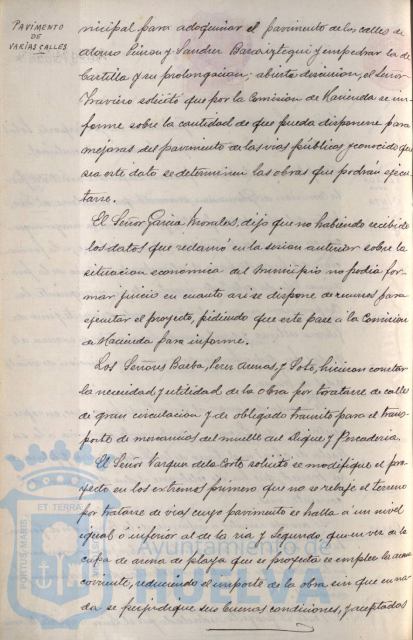 PAVIMENTO
DE
VARIAS CALLES
nicipal para adoquinar el pavimento de las calles de
Alonso Pinzon y Sanchez Barcaiztegui y empedrar la de
Castilla y su prolongacion; abierta discusion, el Señor
Traviero solicitó que por la Comision de Hacienda se in-
forme sobre la cantidad de que pueda disponerse para
mejoras del pavimento de las vias públicas y conocido que
sea este dato se determinen las obras que podrán ejecu-
tarse.
El Señor Garcia Morales, dijo que no habiendo recibido
los datos que reclamó en la sesion anterior sobre la
situacion económica del Municipio no podia for-
mar juicio en cuanto a si se dispone de recursos para
ejecutar el proyecto, pidiendo que este pase á la Comision
de Hacienda para informe.
Los Señores Barba, Perez Arenas, y Soto, hicieron constar
la necesidad y utilidad de la obra por tratarse de calles
de gran circulacion y de obligado transito para el trans-
porte de mercancias del muelle del Dique y Pescaderia.
El Señor Vazquez de la Corte solicitó se modifique el pro-
yecto en los extremos primero que no se rebaje el terreno
por tratarse de vias cuyo pavimento se halla á un nivel
igual ó inferior al de la ria y Segundo, que en vez de la
capa de arena de playa que se proyecta se emplee la arena
corriente, reduciendo el importe de la obra sin que en na-
da se perjudique sus buenas condiciones, y aceptados
ET TERRAE
PORTUS MARIS
Ayuntamiento de
HUELVA